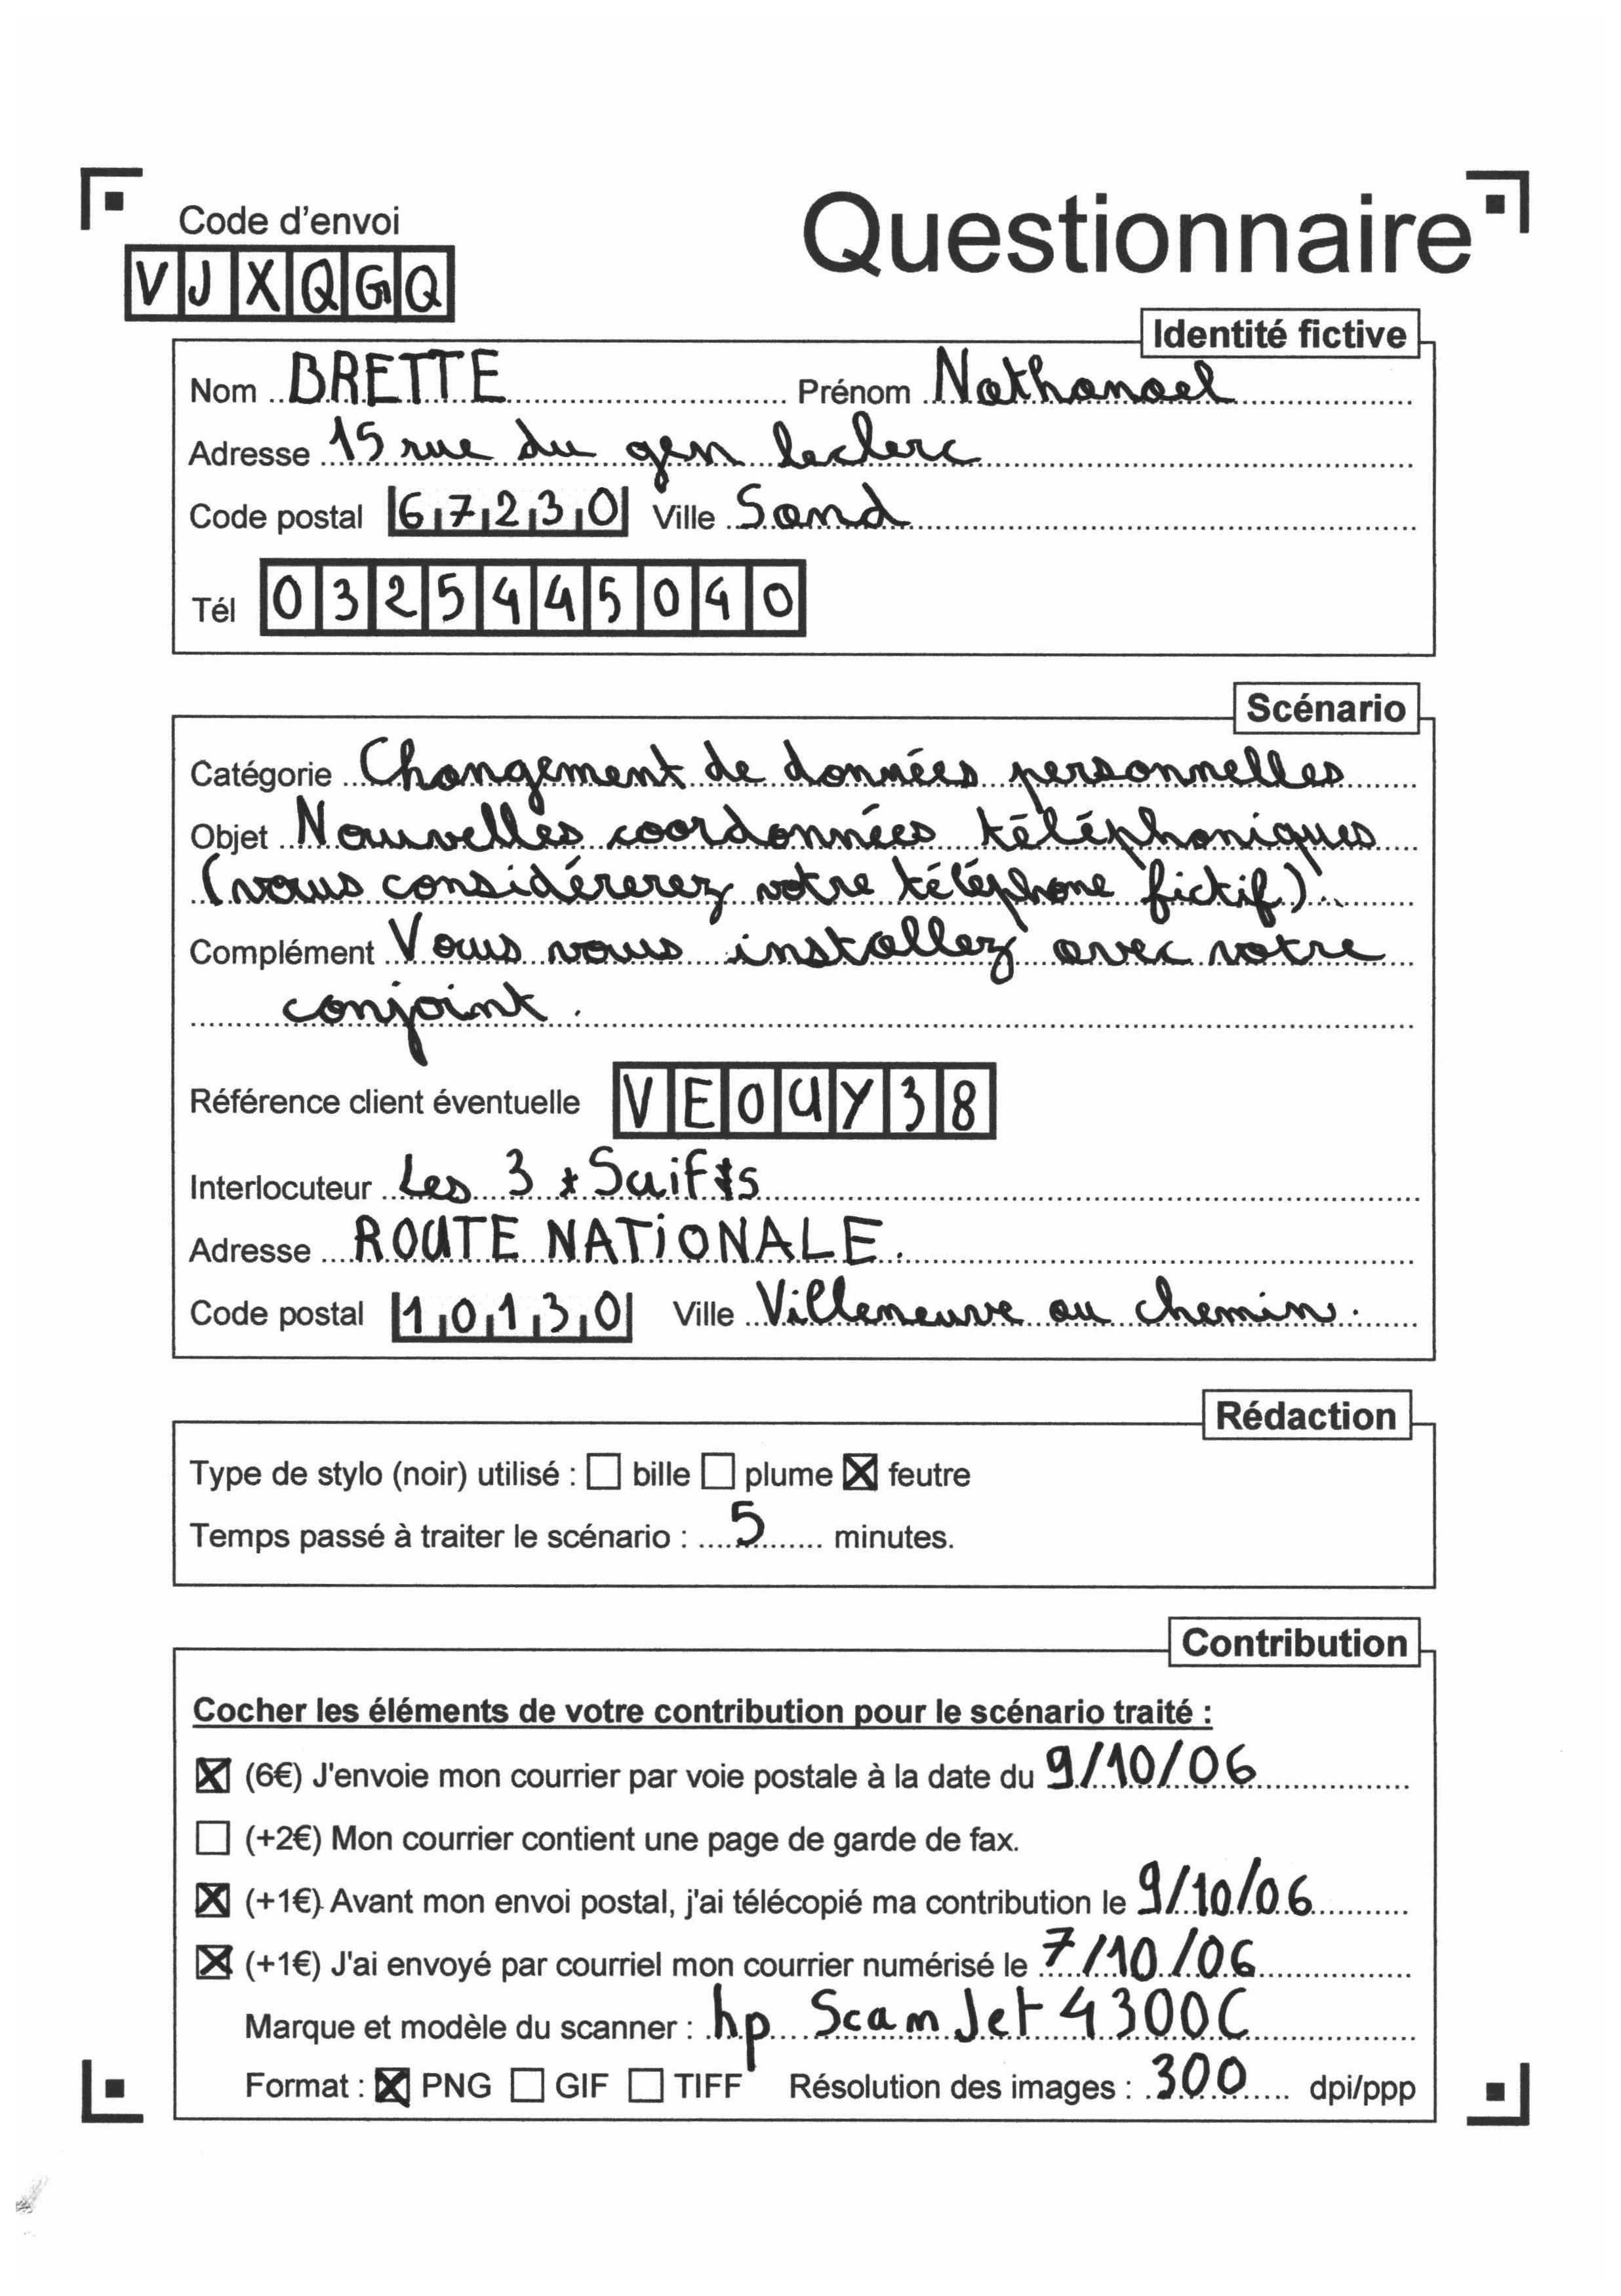 Code d'envoi
Questionnaire
VJXQGQ
Identité fictive
Nom BRETTE Prénom Nathanael
Adresse 15 rue du gen leclerc
Code postal 67230 Ville Sand
Tél 0325445040
Scénario
Catégorie Changement de données personnelles
Objet Nouvelles coordonnées téléphoniques
(vous considérerez votre téléphone fictif).
Complément Vous vous installez avec votre
conjoint.
Référence client éventuelle VEOUY38
Interlocuteur Les 3 * Suif*s
Adresse ROUTE NATIONALE.
Code postal 10130 Ville Villeneuve au chemin.
Rédaction
Type de stylo (noir) utilisé : ☐ bille ☐ plume ☒ feutre
Temps passé à traiter le scénario : 5 minutes.
Contribution
Cocher les éléments de votre contribution pour le scénario traité :
☒ (6€) J'envoie mon courrier par voie postale à la date du 9/10/06
☐ (+2€) Mon courrier contient une page de garde de fax.
☒ (+1€) Avant mon envoi postal, j'ai télécopié ma contribution le 9/10/06
☒ (+1€) J'ai envoyé par courriel mon courrier numérisé le 7/10/06
Marque et modèle du scanner : hp ScanJet 4300C
Format : ☒ PNG ☐ GIF ☐ TIFF Résolution des images : 300 dpi/ppp